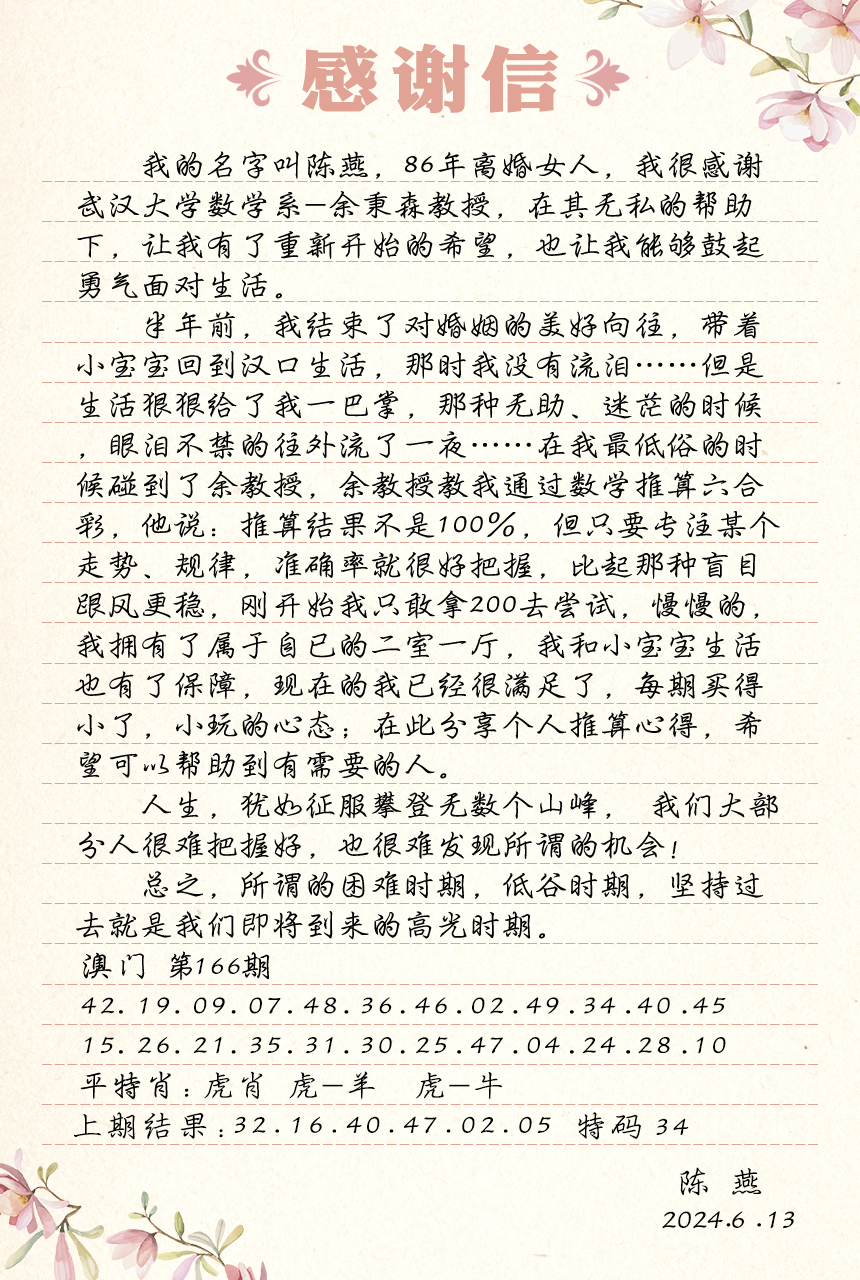 感谢信
我的名字叫陈燕，86年离婚女人，我很感谢
武汉大学数学系—余秉森教授，在其无私的帮助
下，让我有了重新开始的希望，也让我能够鼓起
勇气面对生活。
半年前，我结束了对婚姻的美好向往，带着
小宝宝回到汉口生活，那时我没有流泪……但是
生活狠狠给了我一巴掌，那种无助、迷茫的时候
，眼泪不禁的往外流了一夜……在我最低俗的时
候碰到了余教授，余教授教我通过数学推算六合
彩，他说：推算结果不是100%，但只要专注某个
走势、规律，准确率就很好把握，比起那种盲目
跟风更稳，刚开始我只敢拿200去尝试，慢慢的，
我拥有了属于自已的二室一厅，我和小宝宝生活
也有了保障，现在的我已经很满足了，每期买得
小了，小玩的心态；在此分享个人推算心得，希
望可以帮助到有需要的人。
人生，犹如征服攀登无数个山峰， 我们大部
分人很难把握好，也很难发现所谓的机会！
总之，所谓的困难时期，低谷时期，坚持过
去就是我们即将到来的高光时期。
澳门 第166期
42.19.09.07.48.36.46.02.49.34.40.45
15.26.21.35.31.30.25.47.04.24.28.10
平特肖：虎肖 虎—羊 虎—牛
上期结果：32.16.40.47.02.05 特码 34
陈 燕
2024.6.13